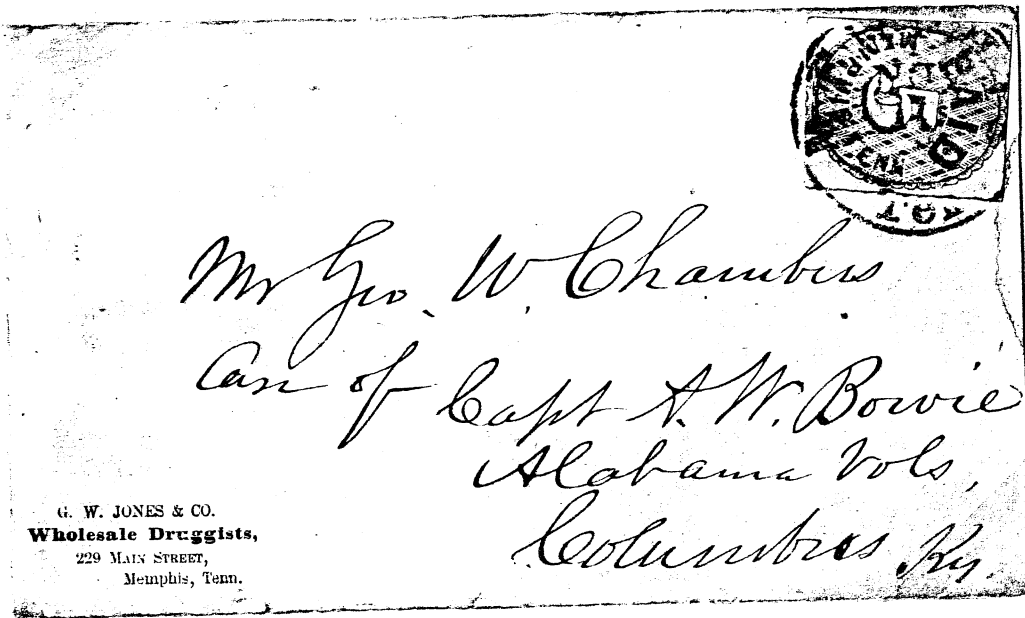 PAID
5
Mr Geo. W. Chambers
Care of
Capt A. W. Bowie
Alabama Vols,
Columbus Ky.
G. W. JONES & CO.
Wholesale Druggists,
229 MAIN STREET,
Memphis, Tenn.